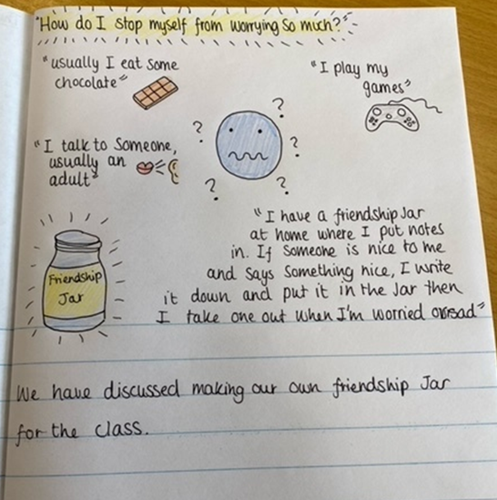 "How do I stop myself from worrying so much?"
"usually I eat some
chocolate"
"I play my
games"
"I talk to someone,
usually an
adult"
? ? ? ? ? ?
Friendship
Jar
"I have a friendship Jar
at home where I put notes
in. If someone is nice to me
and says something nice, I write
it down and put it in the Jar then
I take one out when I'm worried or sad"
We have discussed making our own friendship Jar
for the class.